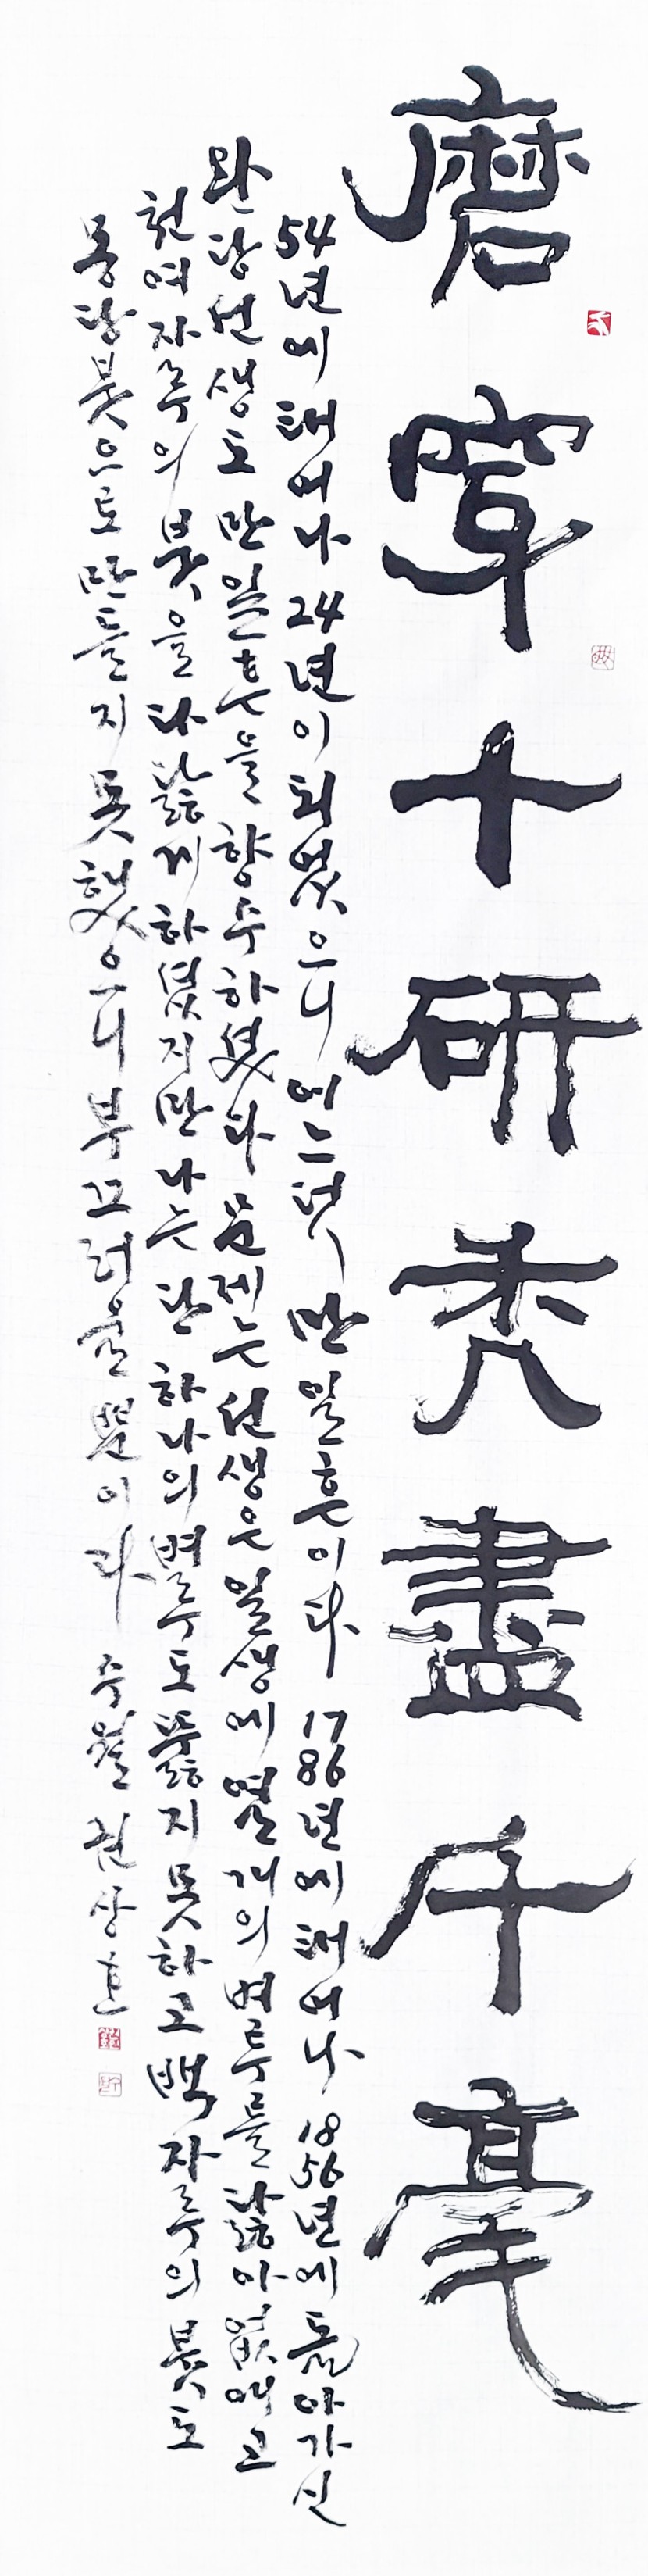 磨穿十硏禿盡千毫
54년에 태어나 24년이 되였으니 어느덧 만 일흔이다 1786년에 태어나 1856년에 돌아가신
완당선생도 만 일흔을 향수하셨다 문제는 선생은 일생에 열 개의 벼루를 닳아 없애고
천여 자루의 붓을 다 닳게 하였지만 나는 단 하나의 벼루도 뚫지 못하고 백 자루의 붓도
몽당붓으로 만들지 못했으니 부끄러울 뿐이다 수월 권상호